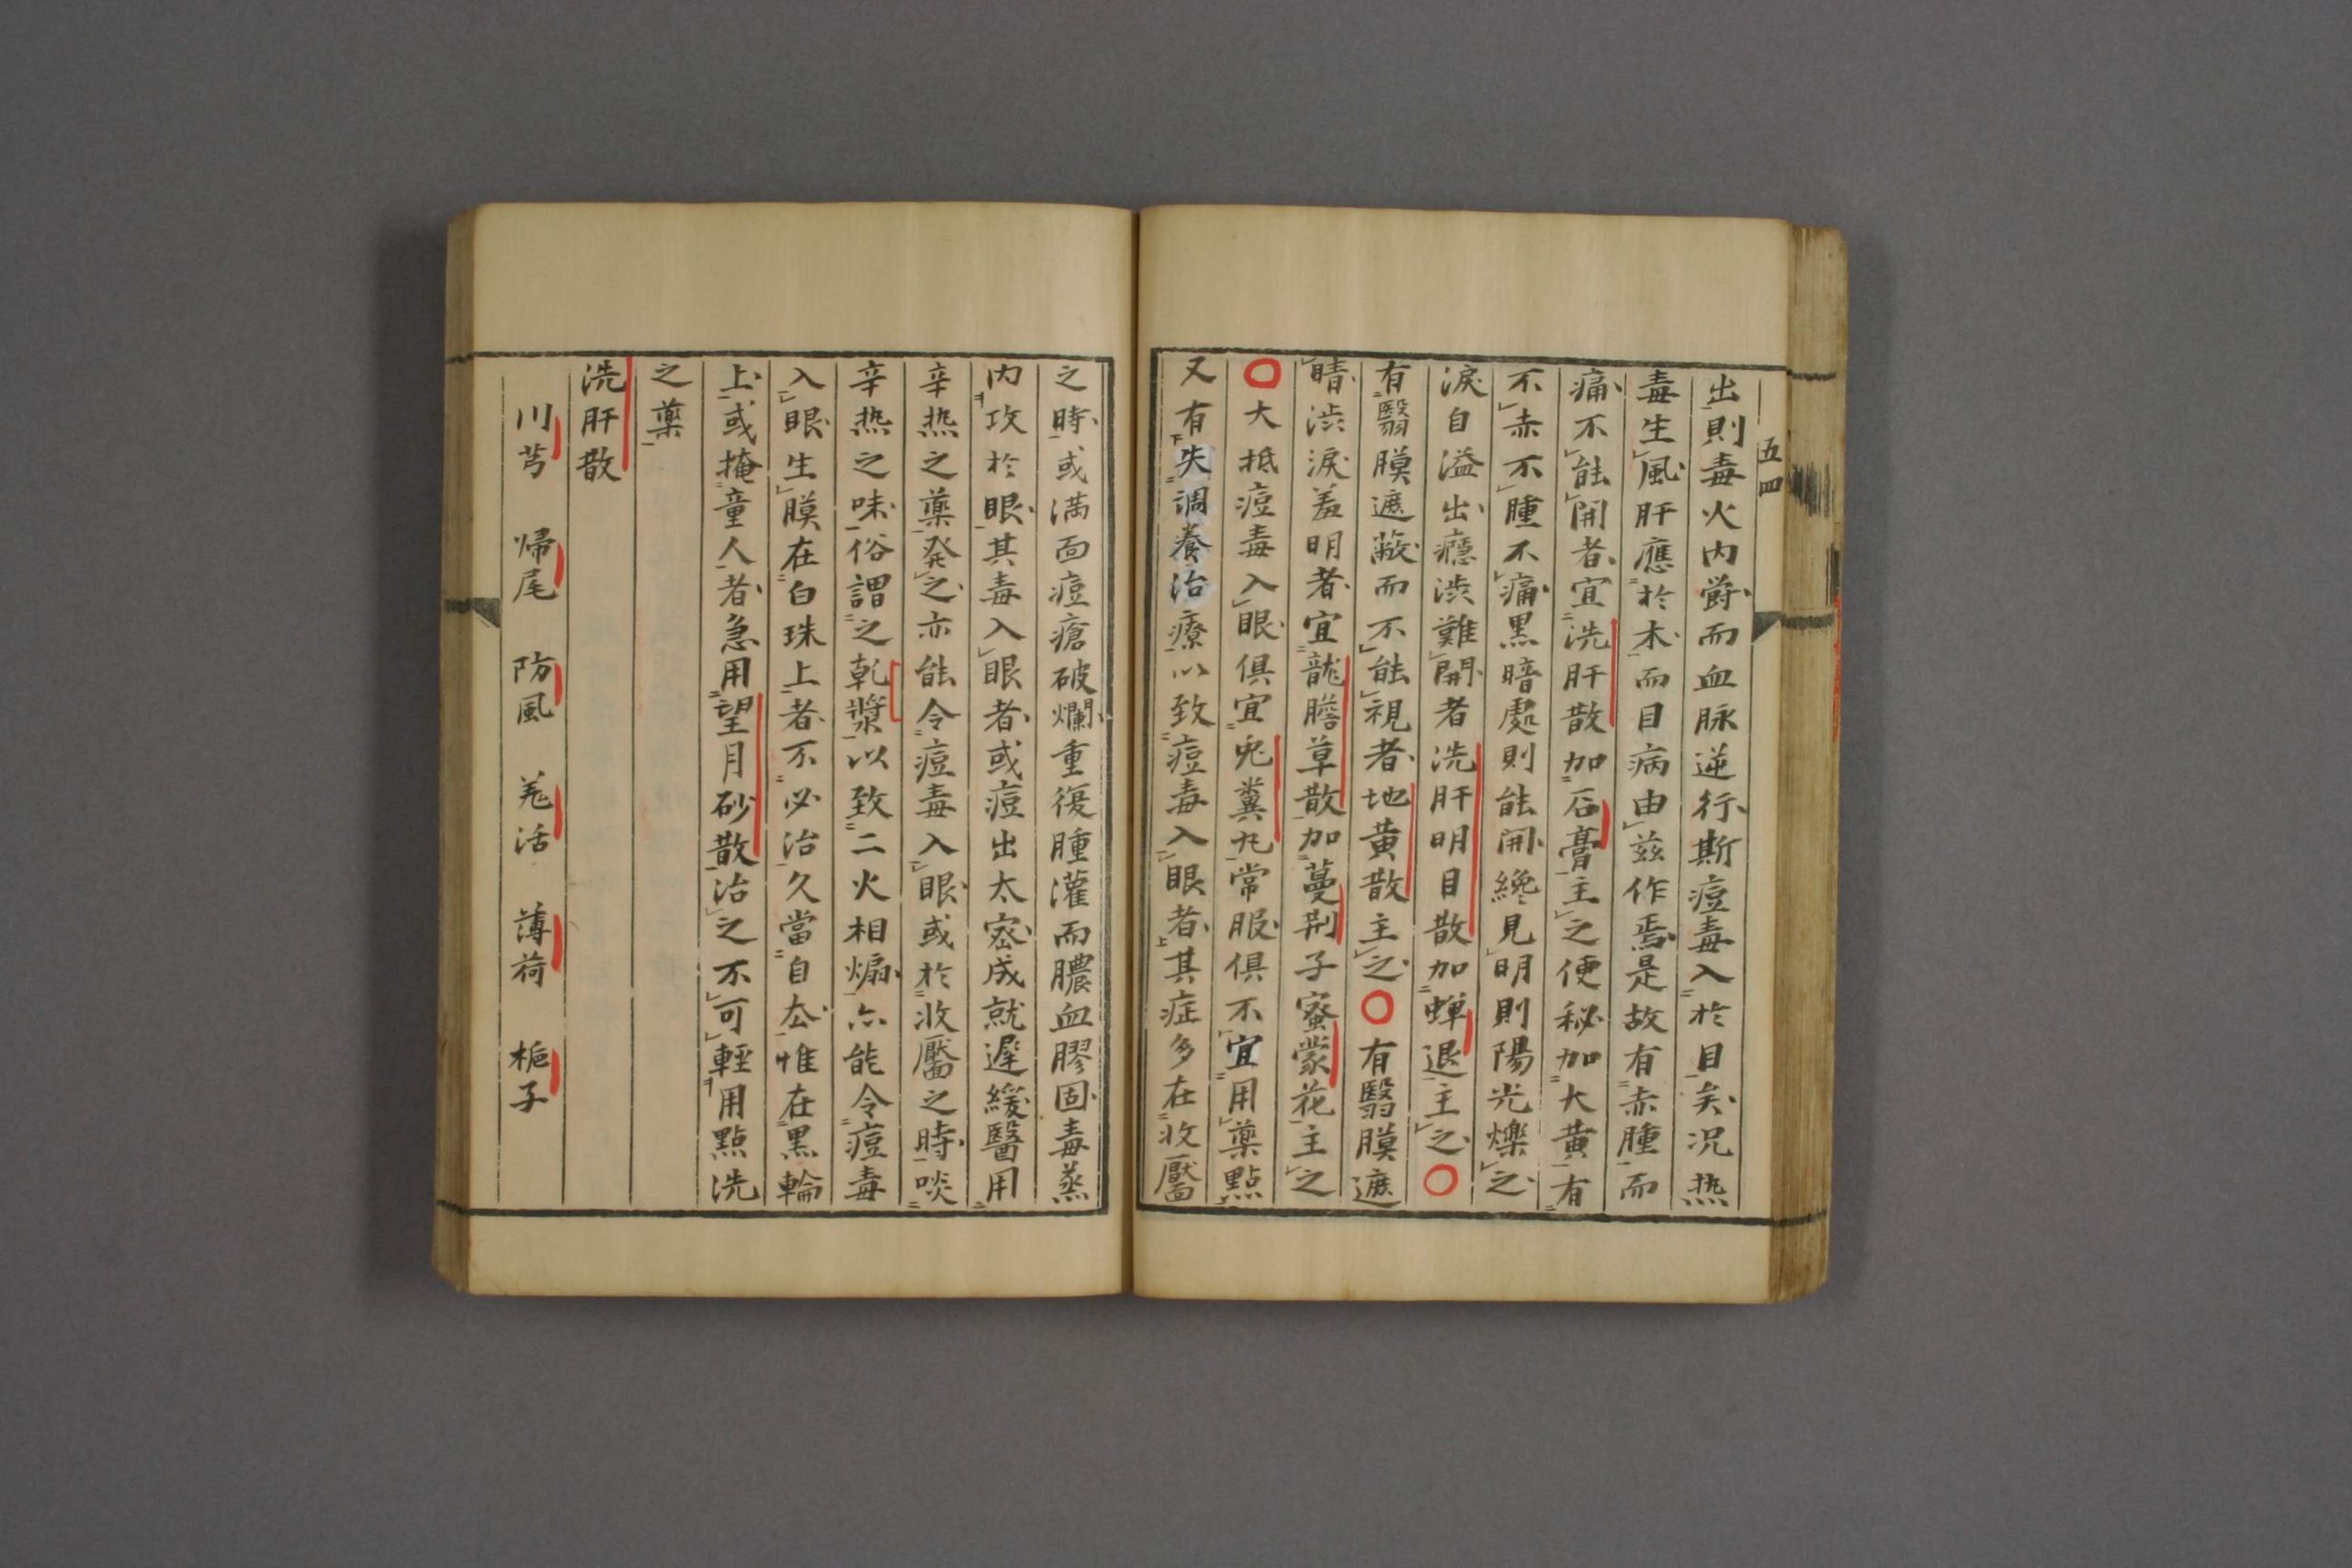 五四
出則毒火内爵而血脉逆行斯痘毒入於目矣况热
毒生風肝應於木而目病由兹作焉是故有赤腫而
痛不能開者宜洗肝散加石膏主之便秘加大黄有
不赤不腫不痛黒暗處則能開纔見明則陽光爍之
淚自溢出癮渋難開者洗肝明目散加蝉退主之〇
有翳膜遮蔽而不能視者地黄散主之〇有翳膜遮
睛渋淚羞明者宜龍膽草散加蔓荆子蜜蒙花主之
〇大抵痘毒入眼俱宜兎糞丸常服俱不宜用藥點
又有失調養治療以致痘毒入眼者其症多在收靨
之時或満面痘瘡破爛重復腫灌而膿血膠固毒蒸
内攻於眼其毒入眼者或痘出太密成就遲緩醫用
辛热之藥発之亦能令痘毒入眼或於收靨之時啖
辛热之味俗謂之乾漿以致二火相煽亦能令痘毒
入眼生膜在白珠上者不必治久當自去惟在黒輪
上或掩童人者急用望月砂散治之不可輕用點洗
之藥
洗肝散
川芎 帰尾 防風 羌活 薄荷 梔子